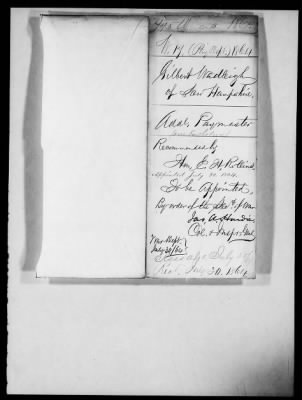 1864
Gilbert Wadleigh
of New Hampshire.
Addl. Paymaster
Recommended by
Hon. E. H. Rollins
appointed July 30. 1864.
To be Appointed,
By order of the Sec. of War
Jas. A. Hardie
Col. & Insp. Genl.
War Dept.
July 30/64
July 30. 1864